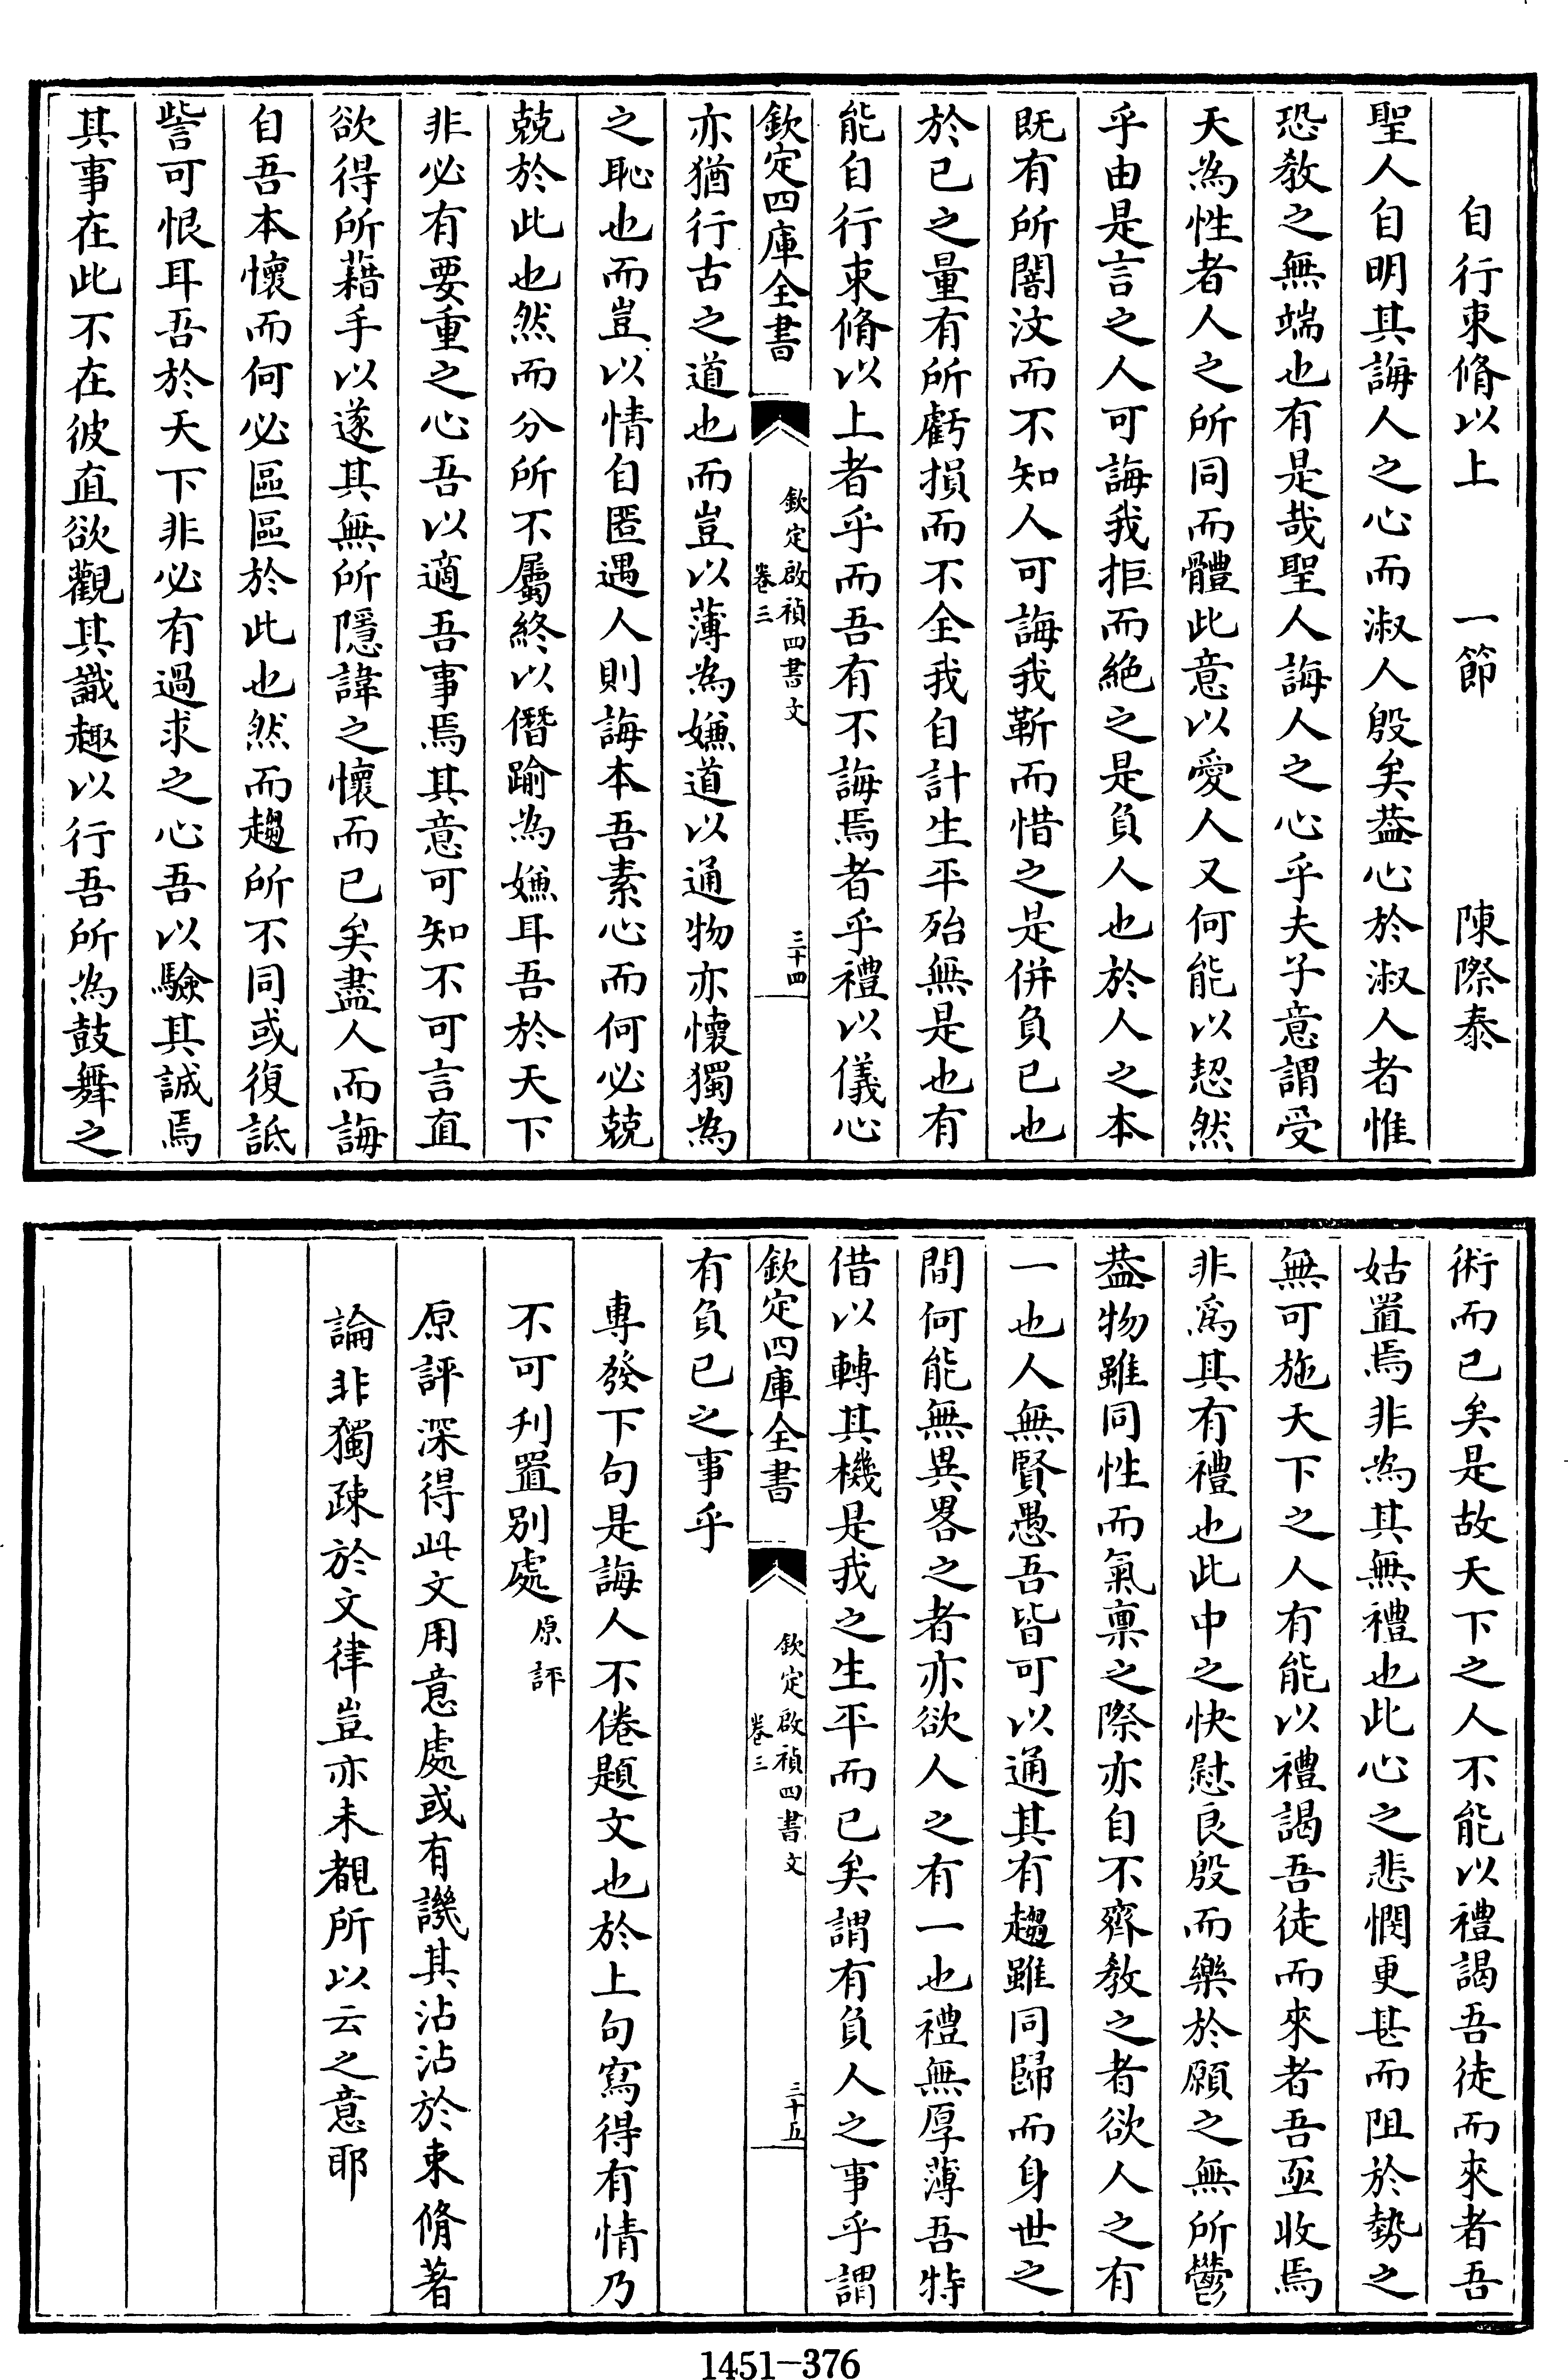 自行束脩以上　一節　陳際泰
聖人自明其誨人之心而淑人殷矣葢心於淑人者惟
恐教之無端也有是哉聖人誨人之心乎夫子意謂受
天為性者人之所同而體此意以愛人又何能以恝然
乎由是言之人可誨我拒而絶之是負人也於人之本
既有所闇汶而不知人可誨我靳而惜之是併負已也
於已之量有所虧損而不全我自計生平殆無是也有
能自行束脩以上者乎而吾有不誨焉者乎禮以儀心
欽定四庫全書
欽定啟禎四書文
卷三
三十四
亦猶行古之道也而豈以薄為嫌道以通物亦懷獨為
之恥也而豈以情自匿遇人則誨本吾素心而何必兢
兢於此也然而分所不屬終以僭踰為嫌耳吾於天下
非必有要重之心吾以適吾事焉其意可知不可言直
欲得所藉手以遂其無所隱諱之懷而已矣盡人而誨
自吾本懷而何必區區於此也然而趨所不同或復詆
訾可恨耳吾於天下非必有過求之心吾以驗其誠焉
其事在此不在彼直欲觀其識趣以行吾所為鼓舞之
術而已矣是故天下之人不能以禮謁吾徒而來者吾
姑置焉非為其無禮也此心之悲憫更甚而阻於勢之
無可施天下之人有能以禮謁吾徒而來者吾亟收焉
非爲其有禮也此中之快慰良殷而樂於願之無所鬱
葢物雖同性而氣稟之際亦自不齊教之者欲人之有
一也人無賢愚吾皆可以通其有趨雖同歸而身世之
間何能無異畧之者亦欲人之有一也禮無厚薄吾特
借以轉其機是我之生平而已矣謂有負人之事乎謂
欽定四庫全書
欽定啟禎四書文
卷三
三十五
有負已之事乎
專發下句是誨人不倦題文也於上句寫得有情乃
不可刋置别處原評
原評深得此文用意處或有譏其沾沾於束脩著
論非獨疎於文律豈亦未覩所以云之意耶
1451—376